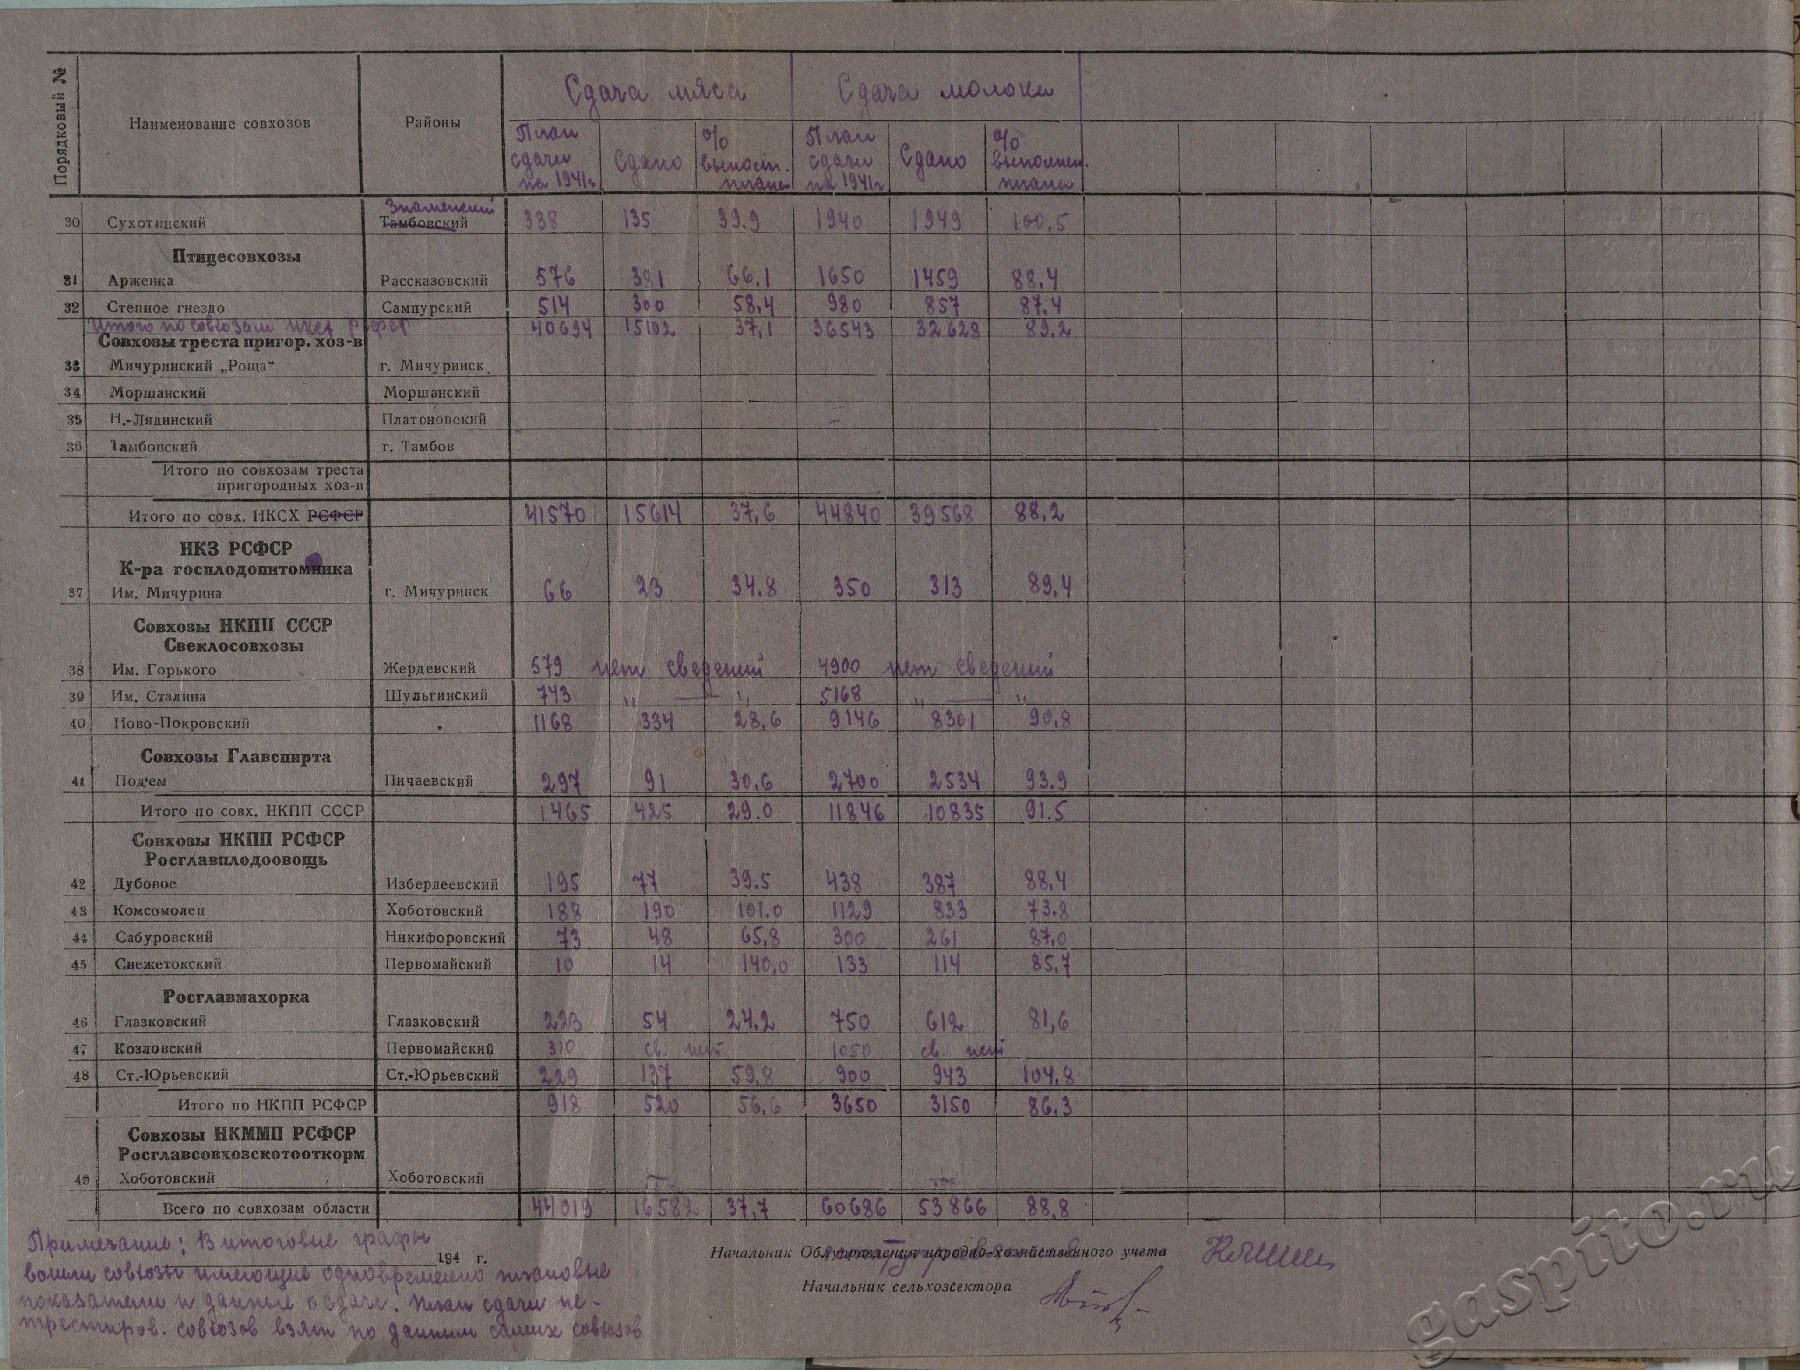 Порядковый №
Наименование совхозов
Районы
Сдача мяса
Сдача молока
План сдачи на 1941г
Сдано
% выполн. плана
План сдачи на 1941г
Сдано
% выполнен. плана
Знаменский
30 Сухотинский Тамбовский 338 135 39.9 1940 1949 100,5
Птицесовхозы
31 Арженка Рассказовский 576 381 66,1 1650 1459 88.4
32 Степное гнездо Сампурский 514 300 58,4 980 857 87.4
Итого по совхозам нксх РСФСР 40694 15102 37,1 36543 32628 89.2
Совхозы треста пригор. хоз-в
33 Мичуринский „Роща“ г. Мичуринск
34 Моршанский Моршанский
35 Н.-Лядинский Платоновский
36 Тамбовский г. Тамбов
Итого по совхозам треста
пригородных хоз-в
Итого по совх. НКСХ РСФСР 41570 15614 37,6 44840 39568 88,2
НКЗ РСФСР
К-ра госплодопитомника
37 Им. Мичурина г. Мичуринск 66 23 34.8 350 313 89,4
Совхозы НКПП СССР
Свеклосовхозы
38 Им. Горького Жердевский 579 нет сведений 4900 нет сведений
39 Им. Сталина Шульгинский 743 „ — „ 5168 „ — „
40 Ново-Покровский „ 1168 334 28,6 9146 8301 90,8
Совхозы Главспирта
41 Под'ем Пичаевский 297 91 30.6 2700 2534 93.9
Итого по совх. НКПП СССР 1465 425 29.0 11846 10835 91.5
Совхозы НКПП РСФСР
Росглавплодоовощь
42 Дубовое Избердеевский 195 77 39.5 438 387 88.4
43 Комсомолец Хоботовский 188 190 101.0 1129 833 73.8
44 Сабуровский Никифоровский 73 48 65,8 300 261 87,0
45 Снежетокский Первомайский 10 14 140,0 133 114 85.7
Росглавмахорка
46 Глазковский Глазковский 223 54 24.2 750 612 81,6
47 Козловский Первомайский 310 св. нет 1050 св. нет
48 Ст.-Юрьевский Ст.-Юрьевский 229 137 59,8 900 943 104,8
Итого по НКПП РСФСР 918 520 56,6 3650 3150 86,3
Совхозы НКММП РСФСР
Росглавсовхозскотооткорм
49 Хоботовский Хоботовский
Всего по совхозам области 44019 16582 37,7 60686 53866 88,8
Примечание: В итоговые графы
194 г.
вошли совхозы имеющие одновременно плановые
показатели и данные о сдаче. План сдачи не-
трестиров. совхозов взят по данным самих совхозов
Начальник Облуправления народно-хозяйственного учета
Начальник сельхозсектора
gaspito.ru